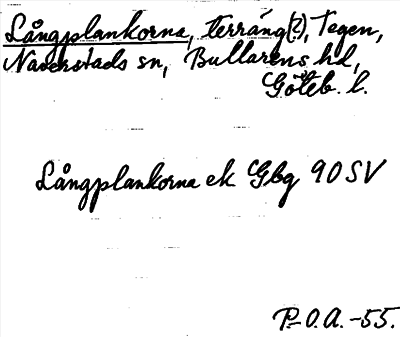 Långplankorna, terräng(?), Tegen,
Naverstads sn, Bullarens hd,
Göteb. l.
Långplankorna ek Gbg 90 SV
P-O.A. -55.